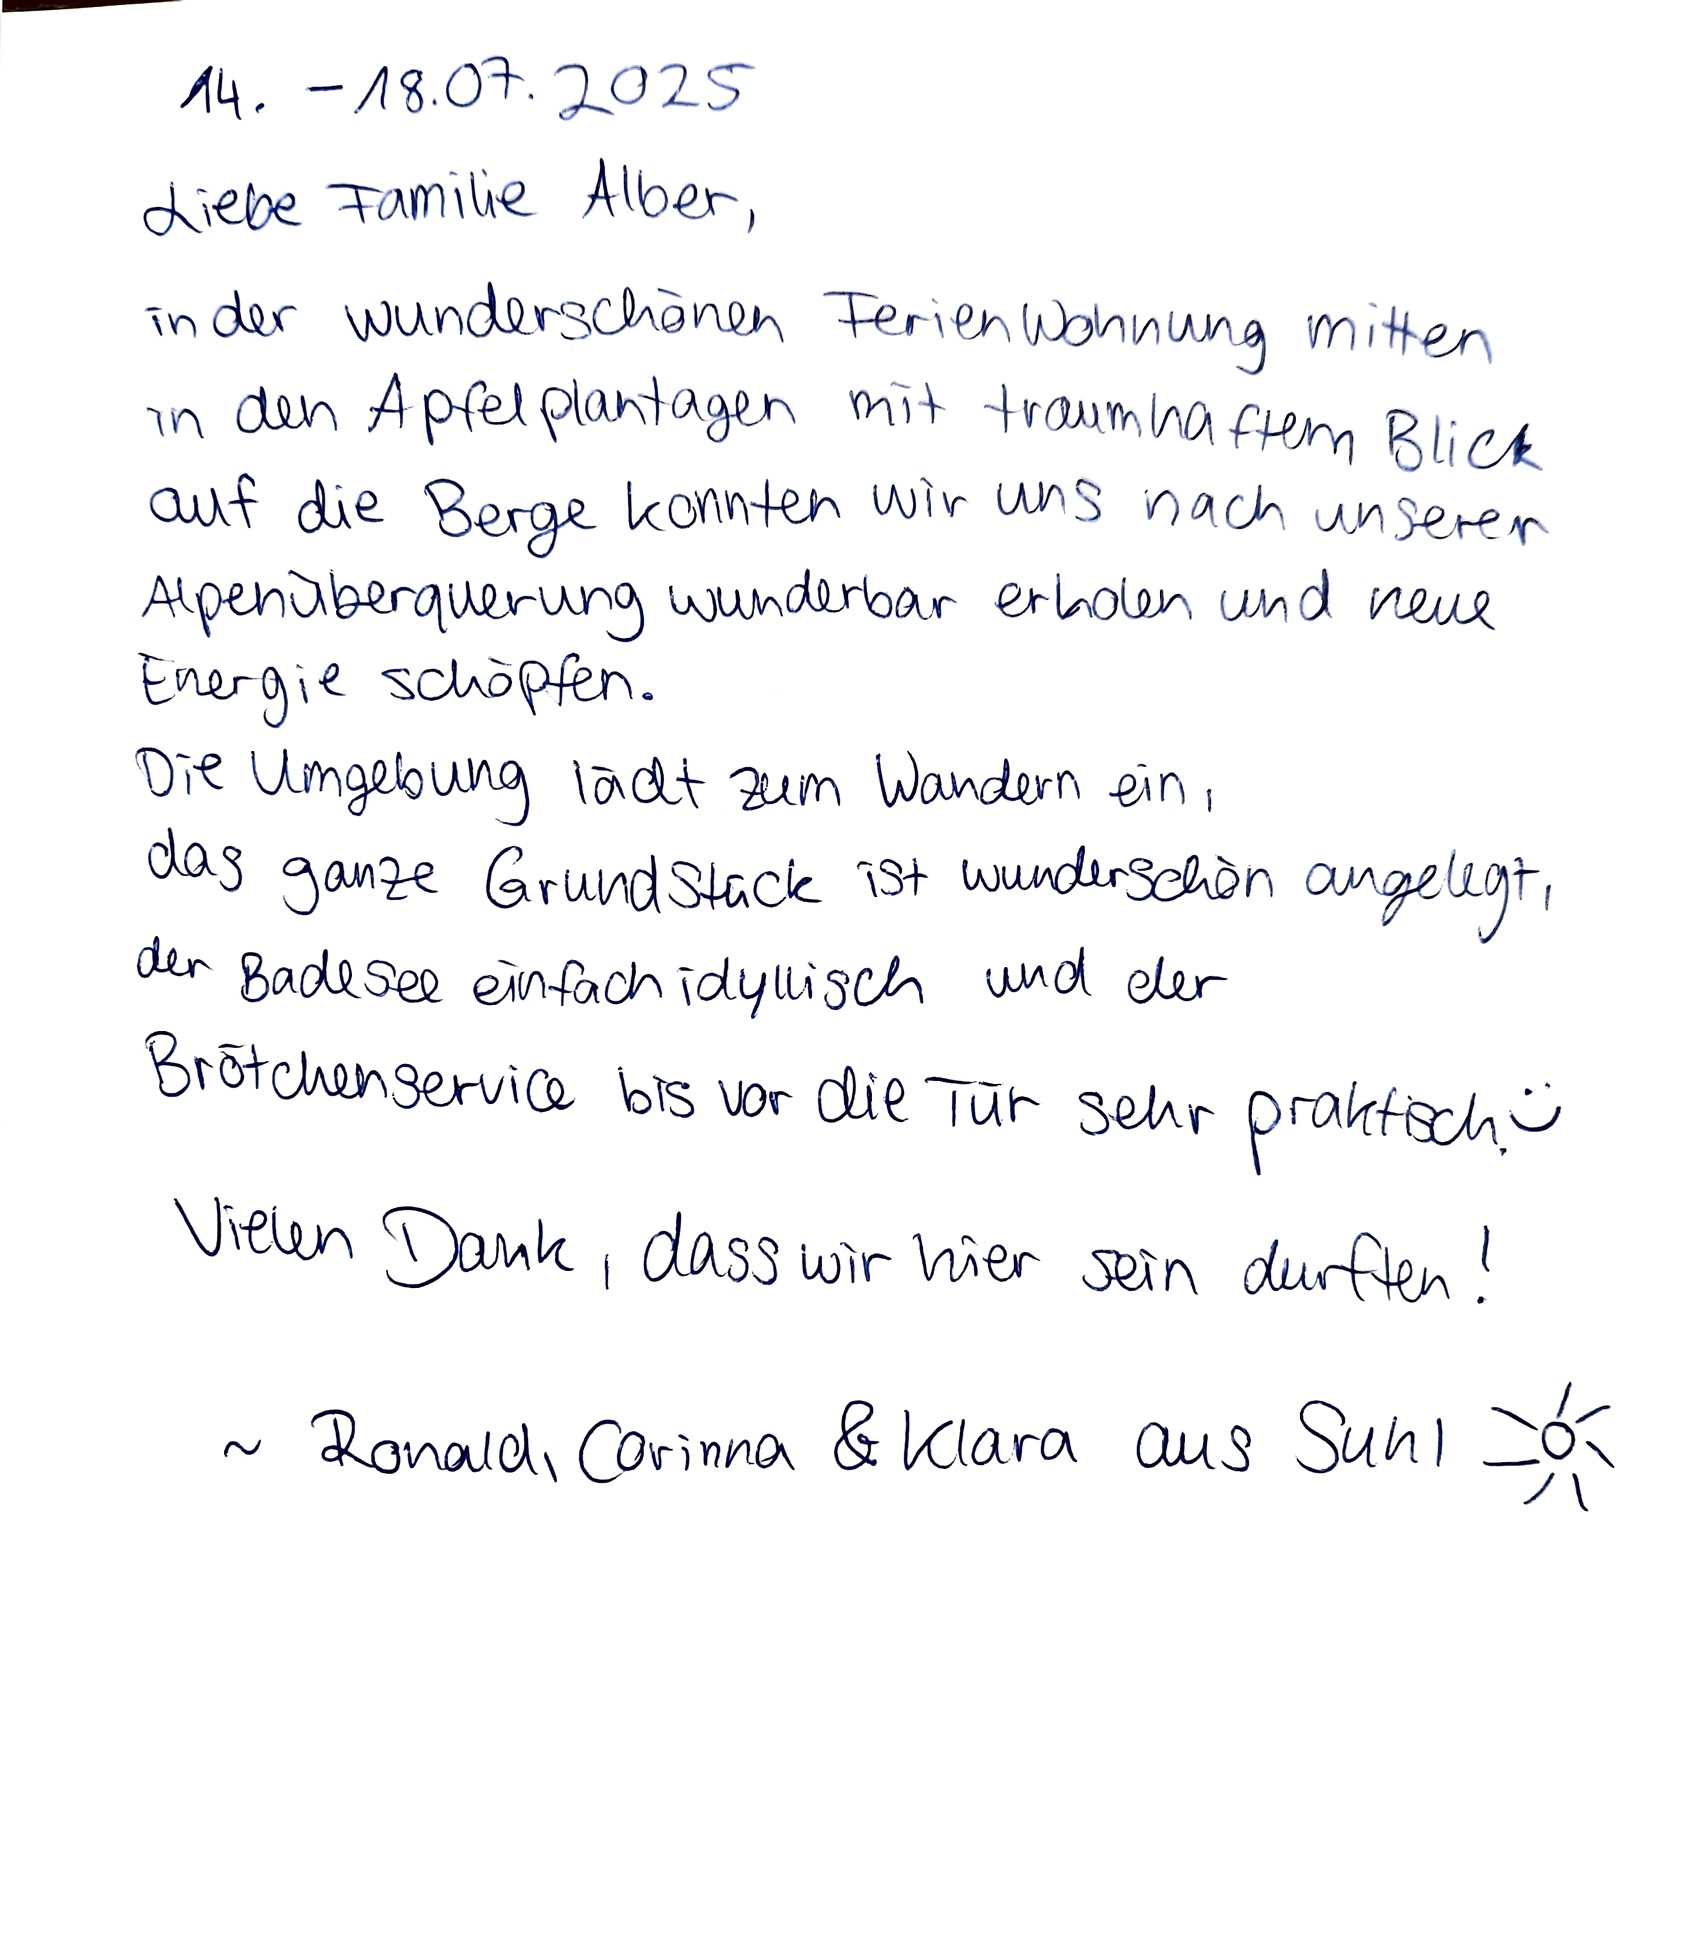 14. - 18.07.2025
Liebe Familie Alber,
in der wunderschönen Ferienwohnung mitten
in den Apfelplantagen mit traumhaftem Blick
auf die Berge konnten wir uns nach unserer
Alpenüberquerung wunderbar erholen und neue
Energie schöpfen.
Die Umgebung lädt zum Wandern ein,
das ganze Grundstück ist wunderschön angelegt,
der Badesee einfach idyllisch und der
Brötchenservice bis vor die Tür sehr praktisch. :)
Vielen Dank, dass wir hier sein durften!
~ Ronald, Corinna & Klara aus Suhl